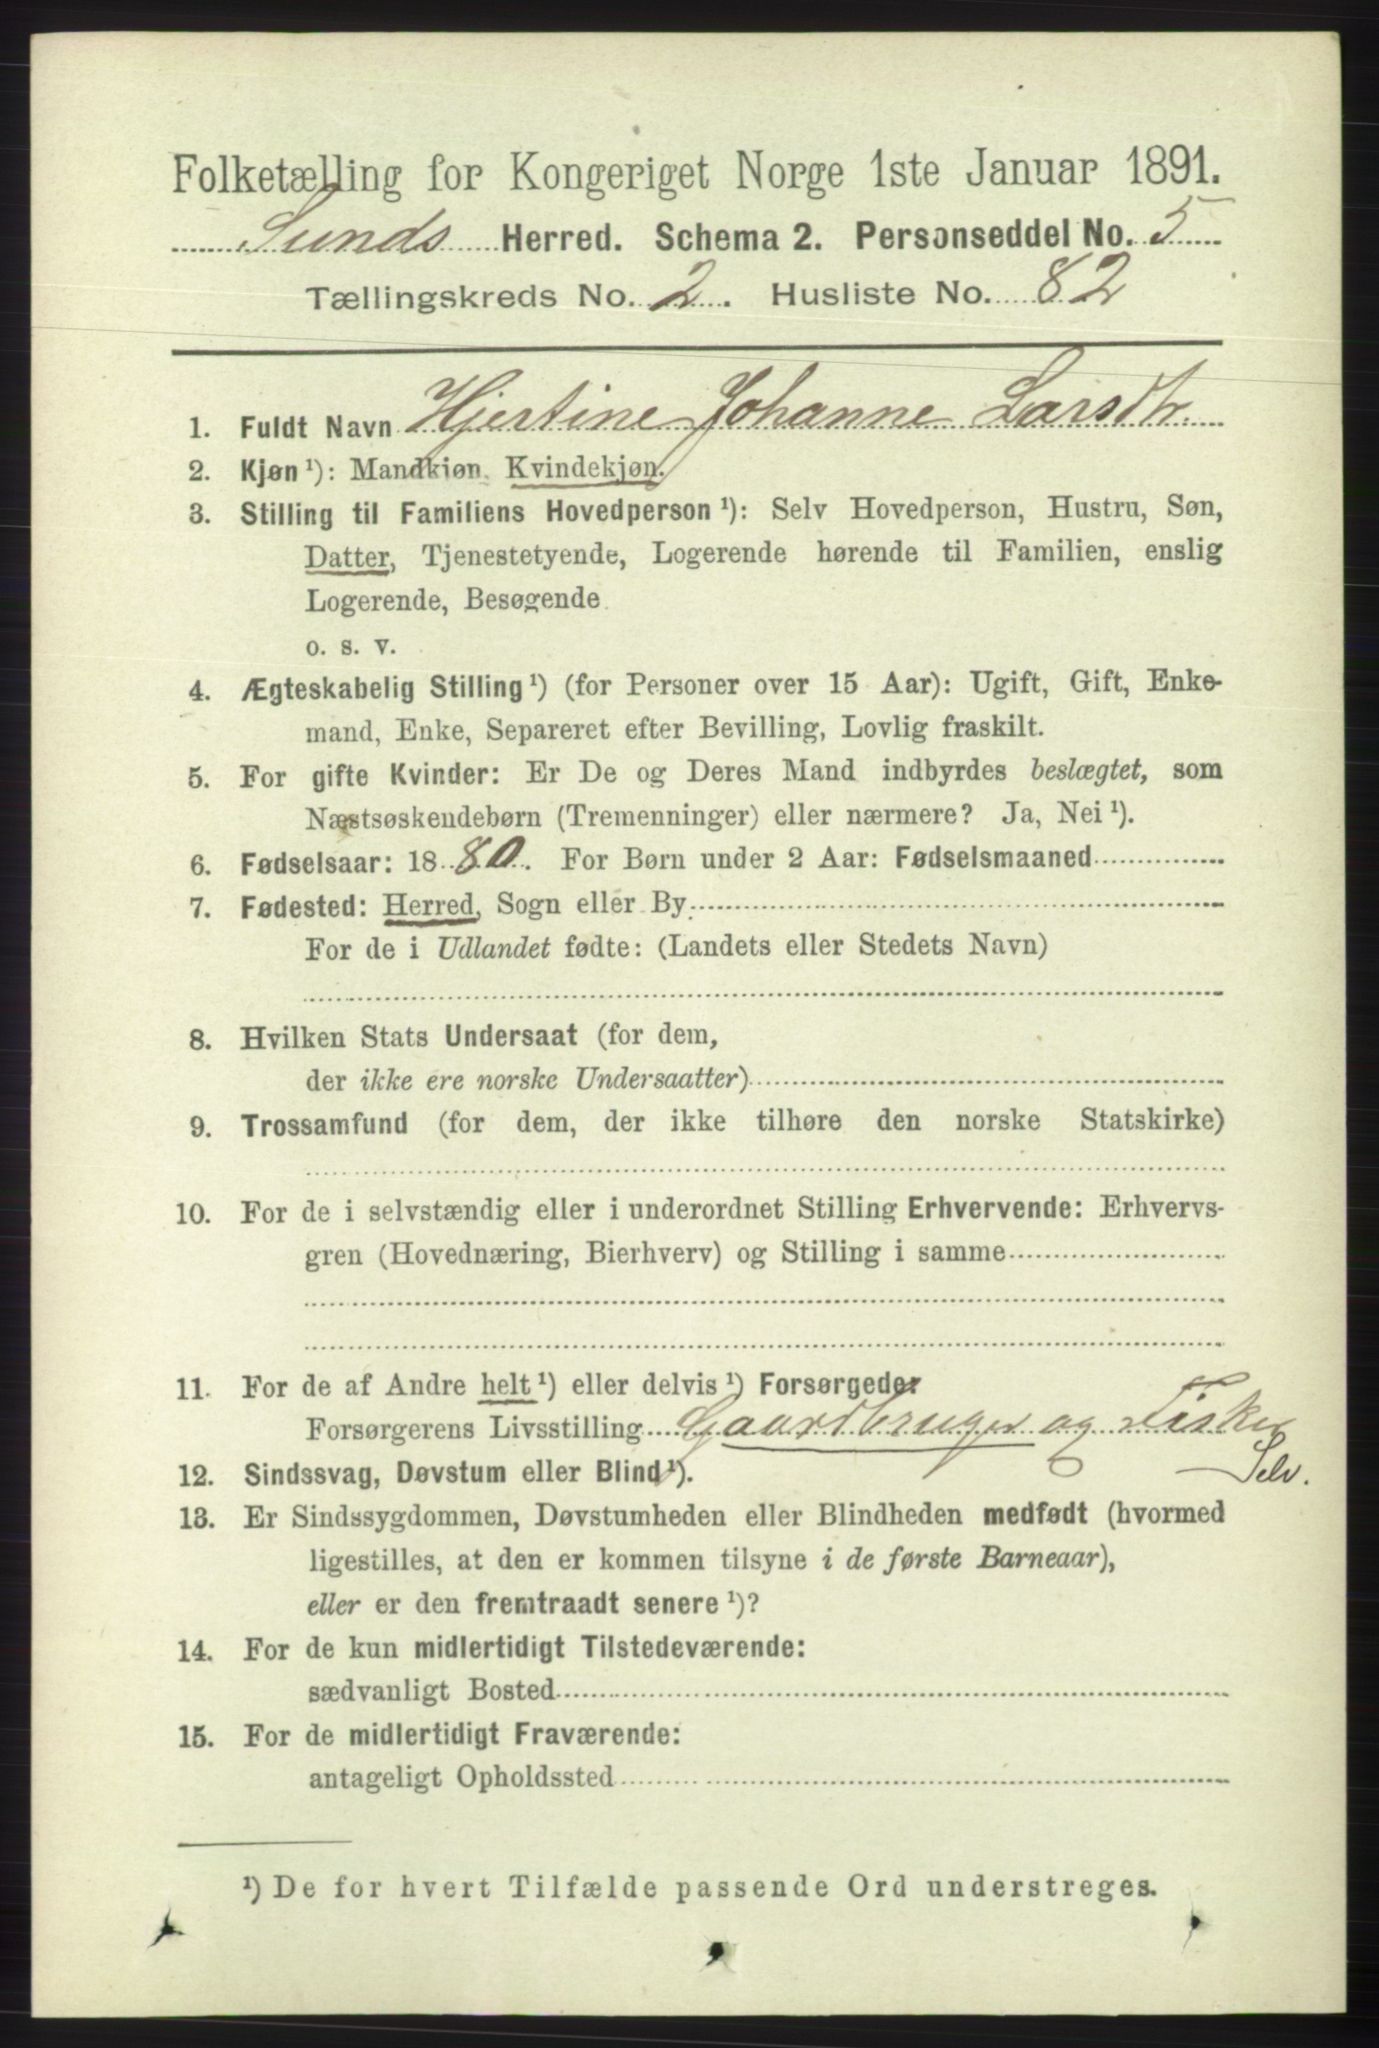 Folketælling for Kongeriget Norge 1ste Januar 1891.
Sunds Herred. Schema 2. Personseddel No. 5
Tællingskreds No. 2. Husliste No. 82
1. Fuldt Navn Hjertine Johanne Larsdtr.
2. Kjøn ¹): Mandkjøn, Kvindekjøn.
3. Stilling til Familiens Hovedperson ¹): Selv Hovedperson, Hustru, Søn,
Datter, Tjenestetyende, Logerende hørende til Familien, enslig
Logerende, Besøgende
o. s. v.
4. Ægteskabelig Stilling ¹) (for Personer over 15 Aar): Ugift, Gift, Enke-
mand, Enke, Separeret efter Bevilling, Lovlig fraskilt.
5. For gifte Kvinder: Er De og Deres Mand indbyrdes beslægtet, som
Næstsøskendebørn (Tremenninger) eller nærmere? Ja, Nei ¹).
6. Fødselsaar: 1880. For Børn under 2 Aar: Fødselsmaaned
7. Fødested: Herred, Sogn eller By
For de i Udlandet fødte: (Landets eller Stedets Navn)
8. Hvilken Stats Undersaat (for dem,
der ikke ere norske Undersaatter)
9. Trossamfund (for dem, der ikke tilhøre den norske Statskirke)
10. For de i selvstændig eller i underordnet Stilling Erhvervende: Erhvervs-
gren (Hovednæring, Bierhverv) og Stilling i samme
11. For de af Andre helt ¹) eller delvis ¹) Forsørgede:
Forsørgerens Livsstilling Gaardbruger og Fisker
Selv.
12. Sindssvag, Døvstum eller Blind ¹).
13. Er Sindssygdommen, Døvstumheden eller Blindheden medfødt (hvormed
ligestilles, at den er kommen tilsyne i de første Barneaar),
eller er den fremtraadt senere ¹)?
14. For de kun midlertidigt Tilstedeværende:
sædvanligt Bosted
15. For de midlertidigt Fraværende:
antageligt Opholdssted
¹) De for hvert Tilfælde passende Ord understreges.